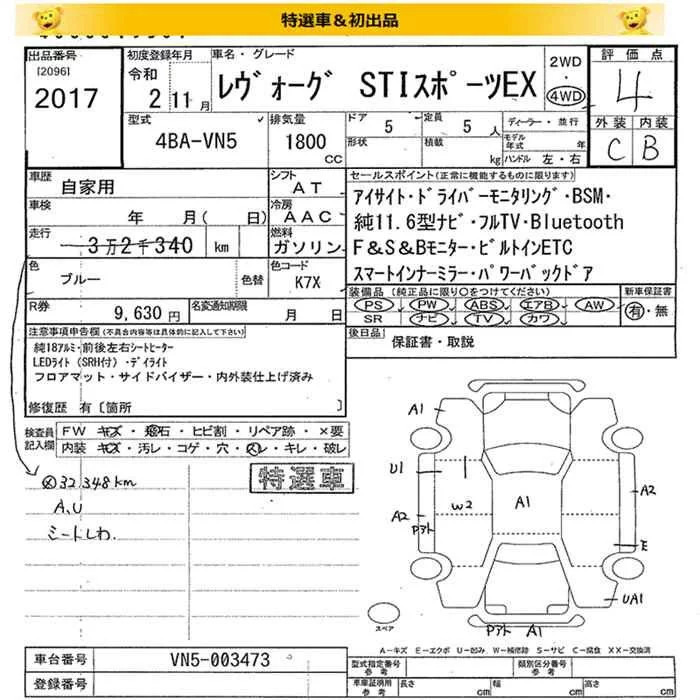 特選車&初出品
出品番号
[2096]
2017
初度登録年月
令和
2 11月
車名・グレード
レヴォーグ STIスポーツEX
2WD
・
4WD
評価点
4
外装 内装
C B
型式
4BA-VN5
排気量
1800
CC
ドア 5
形状
定員 5 人
積載 kg
ディーラー・並行
モデル年式 年
ハンドル 左・右
車歴
自家用
シフト
AT
車検
年 月( 日)
冷房
AAC
走行
3万2千340 km
燃料
ガソリン
色
ブルー
色替
色コード
K7X
R券
9,630 円
名変通知期限
月 日
セールスポイント(正常に機能するものに限ります)
アイサイト・ドライバーモニタリング・BSM・
純11.6型ナビ・フルTV・Bluetooth
F&S&Bモニター・ビルトインETC
スマートインナーミラー・パワーバックドア
装備品(純正品に限り○をつけてください)
PS PW ABS エアB AW
SR ナビ TV カワ
新車保証書
有・無
後日品
保証書・取説
注意事項申告欄(不具合内容等は具体的に記入して下さい)
純18アルミ・前後左右シートヒーター
LEDライト(SRH付)・デイライト
フロアマット・サイドバイザー・内外装仕上げ済み
修復歴 有〔箇所 〕
検査員記入欄
FW キズ・飛石・ヒビ割・リペア跡・×要
内装 キズ・汚レ・コゲ・穴・スレ・キレ・破レ
特選車
32,348km
A,U
シートしわ.
A1
U1
W2
A1
A2
A2
Pアト
E
UA1
スペア
Pアト A1
A-キズ E-エクボ U-凹み W-補修跡 S-サビ C-腐食 XX-交換済
車台番号
VN5-003473
登録番号
型式指定番号
参考
類別区分番号
参考
車庫証明用
参考
長さ cm
幅 cm
高さ cm